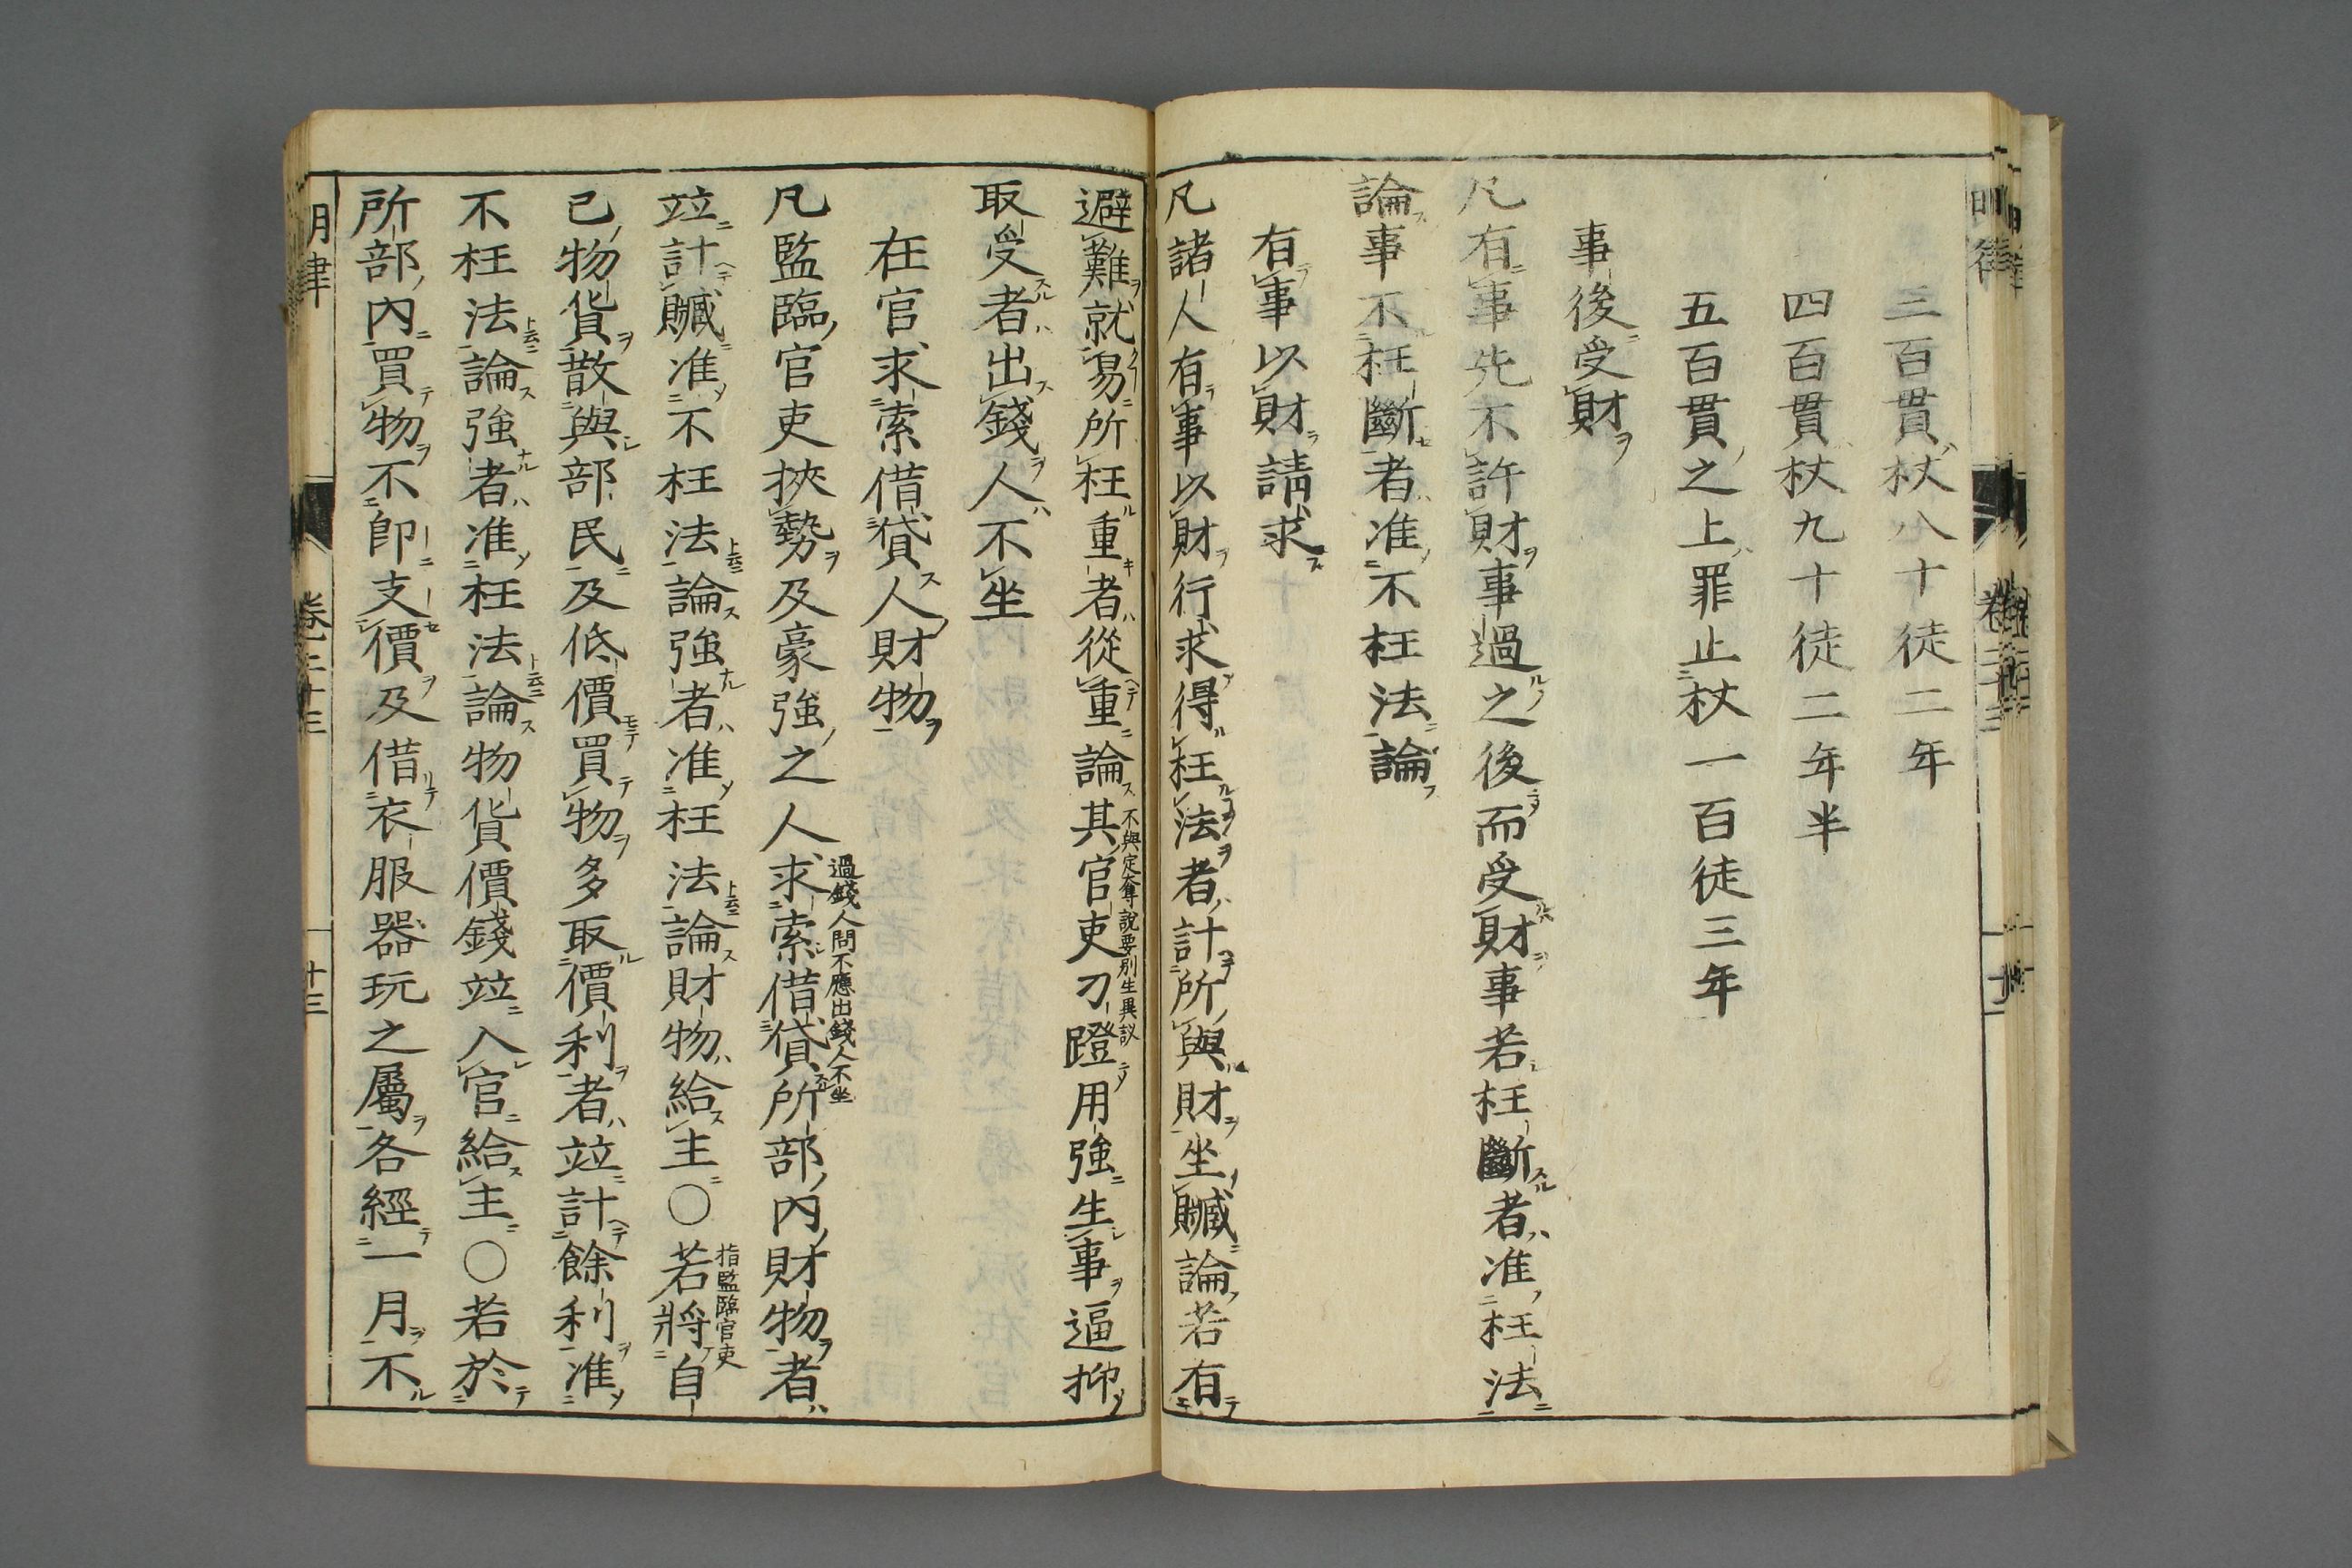 三百貫杖八十徒二年
四百貫杖九十徒二年半
五百貫之上罪止杖一百徒三年
事後受財
凡有事先不許財事過之後而受財事若枉斷者准枉法
論事不枉斷者准不枉法論
有事以財請求
凡諸人有事以財行求得枉法者計所與財坐贓論若有
避難就易所枉重者從重論其官吏刁蹬用強生事逼抑
不與定奪說要別生異議
取受者出錢人不坐
在官求索借貸人財物
凡監臨官吏挾勢及豪強之人求索借貸所部內財物者
過錢人問不應出錢人不坐
竝計贓准不枉法論強者准枉法論財物給主○若將自
指監臨官吏
己物貨散與部民及低價買物多取價利者竝計餘利准
不枉法論強者准枉法論物貨價錢竝入官給主○若於
所部內買物不即支價及借衣服器玩之屬各經一月不
明律
卷二十三
十三